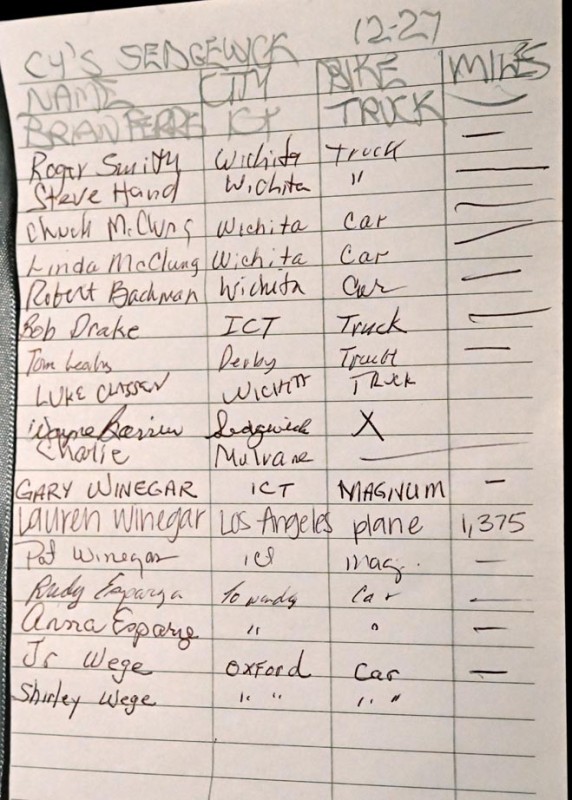 CY'S SEDGEWICK 12-27
NAME CITY BIKE MILES
BRIAN ICT TRUCK —
Roger Smith Wichita Truck —
Steve Hand Wichita " —
Chuck McClung Wichita Car —
Linda McClung Wichita Car —
Robert Bachman Wichita Car —
Bob Drake ICT Truck —
Tom Derby Truck —
LUKE CLASSEN WICHITA TRUCK
Wayne Sedgwick X
Charlie Mulvane —
GARY WINEGAR ICT MAGNUM —
Lauren Winegar Los Angeles plane 1,375
Pat Winegar ICT Mag. —
Rudy Esparza Towanda Car —
Anna Esparza " " —
Jr Wege Oxford Car —
Shirley Wege " " " "